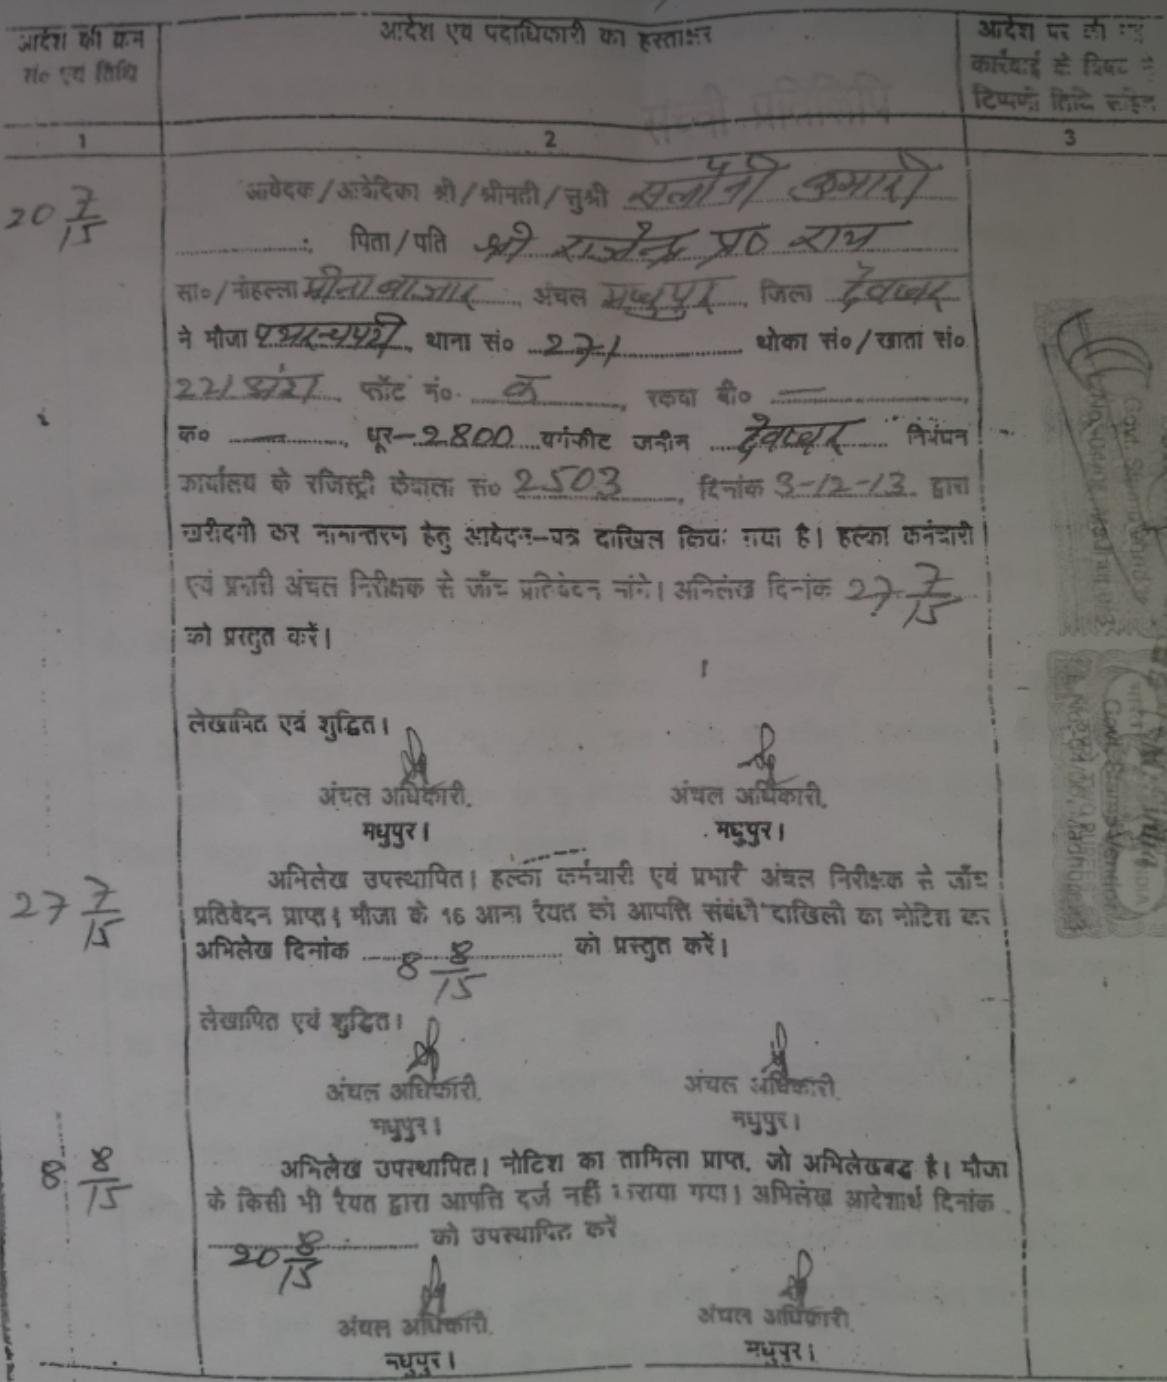 आदेश की क्रम सं० एवं तिथि
आदेश एवं पदाधिकारी का हस्ताक्षर
आदेश पर की गई कार्रवाई के टिप्पणी तिथि सहित
1 2 3
सच्ची प्रतिलिपि
20 7/15
आवेदक/आवेदिका श्री/श्रीमती/सुश्री सलोनी कुमारी
पिता/पति श्री राजेन्द्र प्र० राय
सा०/मोहल्ला मीना बाजार अंचल मधुपुर जिला देवघर
ने मौजा थाना सं० 271 थोका सं०/खाता सं०
221 अंश प्लॉट नं० क, रकवा बी० —
क० — धूर-2800 वर्गफीट जमीन देवघर निबंधन
कार्यालय के रजिस्ट्री केवाला सं० 2503, दिनांक 3-12-13 द्वारा
खरीदगी कर नामान्तरण हेतु आवेदन-पत्र दाखिल किया गया है। हल्का कर्मचारी
एवं प्रभारी अंचल निरीक्षक से जाँच प्रतिवेदन मांगे। अभिलेख दिनांक 27 7/15
को प्रस्तुत करें।
लेखापित एवं शुद्धित।
अंचल अधिकारी, अंचल अधिकारी,
मधुपुर। मधुपुर।
27 7/15
अभिलेख उपस्थापित। हल्का कर्मचारी एवं प्रभारी अंचल निरीक्षक से जाँच
प्रतिवेदन प्राप्त। मौजा के 16 आना रैयत को आपत्ति संबंधी दाखिली का नोटिश कर
अभिलेख दिनांक 8 8/15 को प्रस्तुत करें।
लेखापित एवं शुद्धित।
अंचल अधिकारी, अंचल अधिकारी,
मधुपुर। मधुपुर।
8 8/15
अभिलेख उपस्थापित। नोटिश का तामिला प्राप्त, जो अभिलेखबद्ध है। मौजा
के किसी भी रैयत द्वारा आपत्ति दर्ज नहीं कराया गया। अभिलेख आदेशार्थ दिनांक
20 8/15 को उपस्थापित करें
अंचल अधिकारी, अंचल अधिकारी,
मधुपुर। मधुपुर।